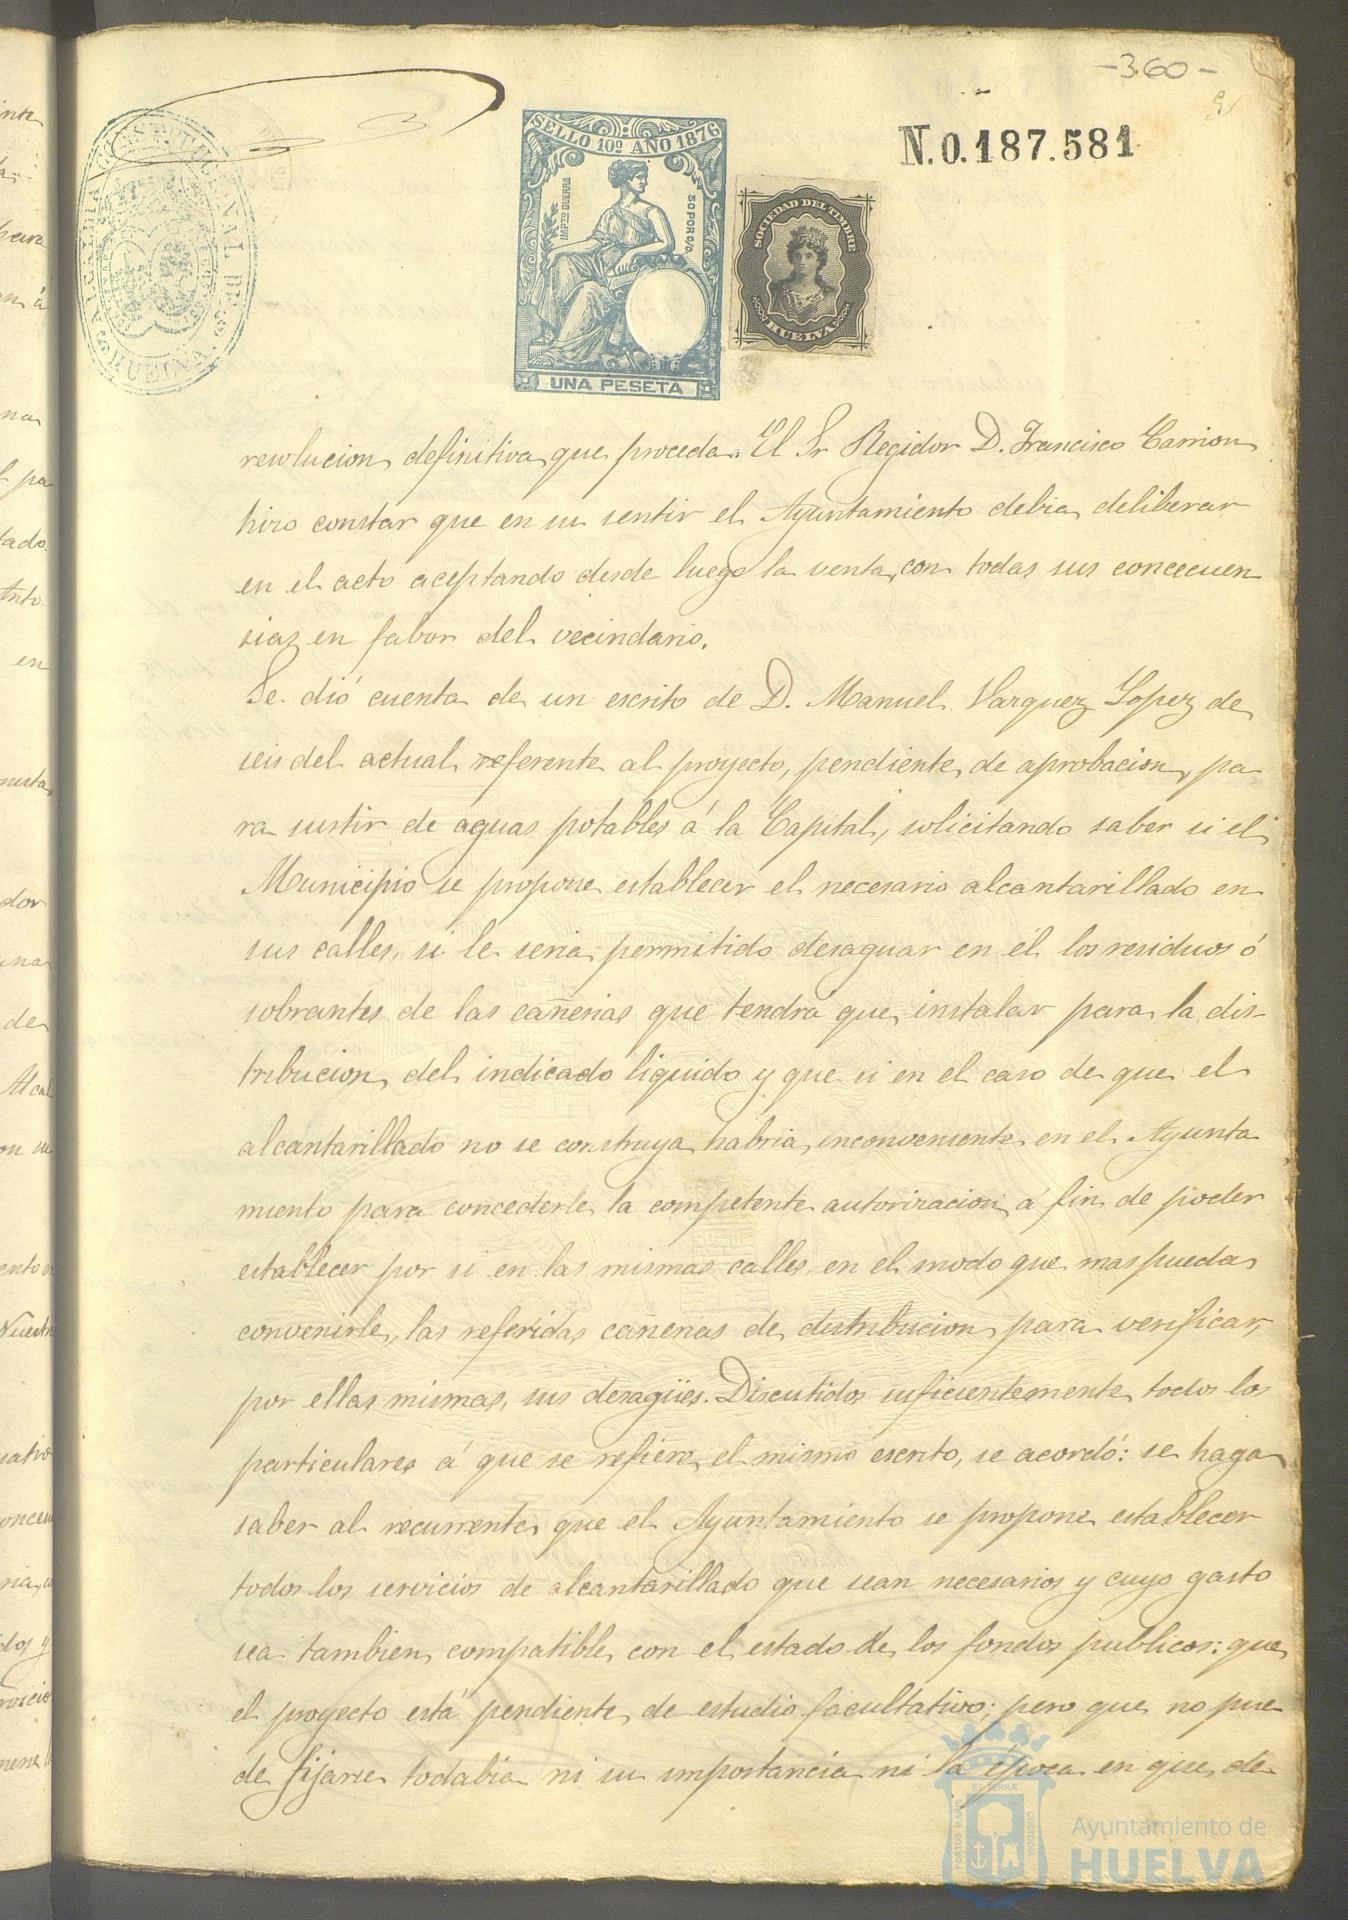 -360-
N.0.187.581
ALCALDIA CONSTITUCIONAL DE
HUELVA
SELLO 10º AÑO 1876
IMPTO GUERRA
50 POR C/O
UNA PESETA
SOCIEDAD DEL TIMBRE
HUELVA
resolucion definitiva que proceda. El Sr Regidor D. Francisco Carrion
hizo constar que en su sentir el Ayuntamiento debia deliberar
en el acto aceptando desde luego la venta con todas sus concecuen
sias en fabor del vecindario.
Se dió cuenta de un escrito de D. Manuel Vazquez Lopez de
seis del actual referente al proyecto, pendiente de aprobacion, pa
ra surtir de aguas potables á la Capital, solicitando saber si el
Municipio se propone establecer el necesario alcantarillado en
sus calles, si le seria permitido desaguar en él los residuos ó
sobrantes de las cañerias que tendra que instalar para la dis-
tribucion del indicado liquido y que si en el caso de que el
alcantarillado no se construya habria inconveniente en el Ayunta
miento para concederle la competente autorizacion á fin de poder
establecer por si en las mismas calles, en el modo que mas pueda
convenirle, las referidas cañerias de distribucion para verificar,
por ellas mismas, sus desagües. Discutidos suficientemente todos los
particulares á que se refiere el mismo escrito, se acordó: se haga
saber al recurrente que el Ayuntamiento se propone establecer
todos los servicios de alcantarillado que sean necesarios y cuyo gasto
sea tambien compatible con el estado de los fondos publicos: que
el proyecto está pendiente de estudio facultativo; pero que no pue
de fijarse todabia ni su importancia ni la época en que de
PORTUS MARIS
ET TERRÆ
CUSTODIA
Ayuntamiento de
HUELVA